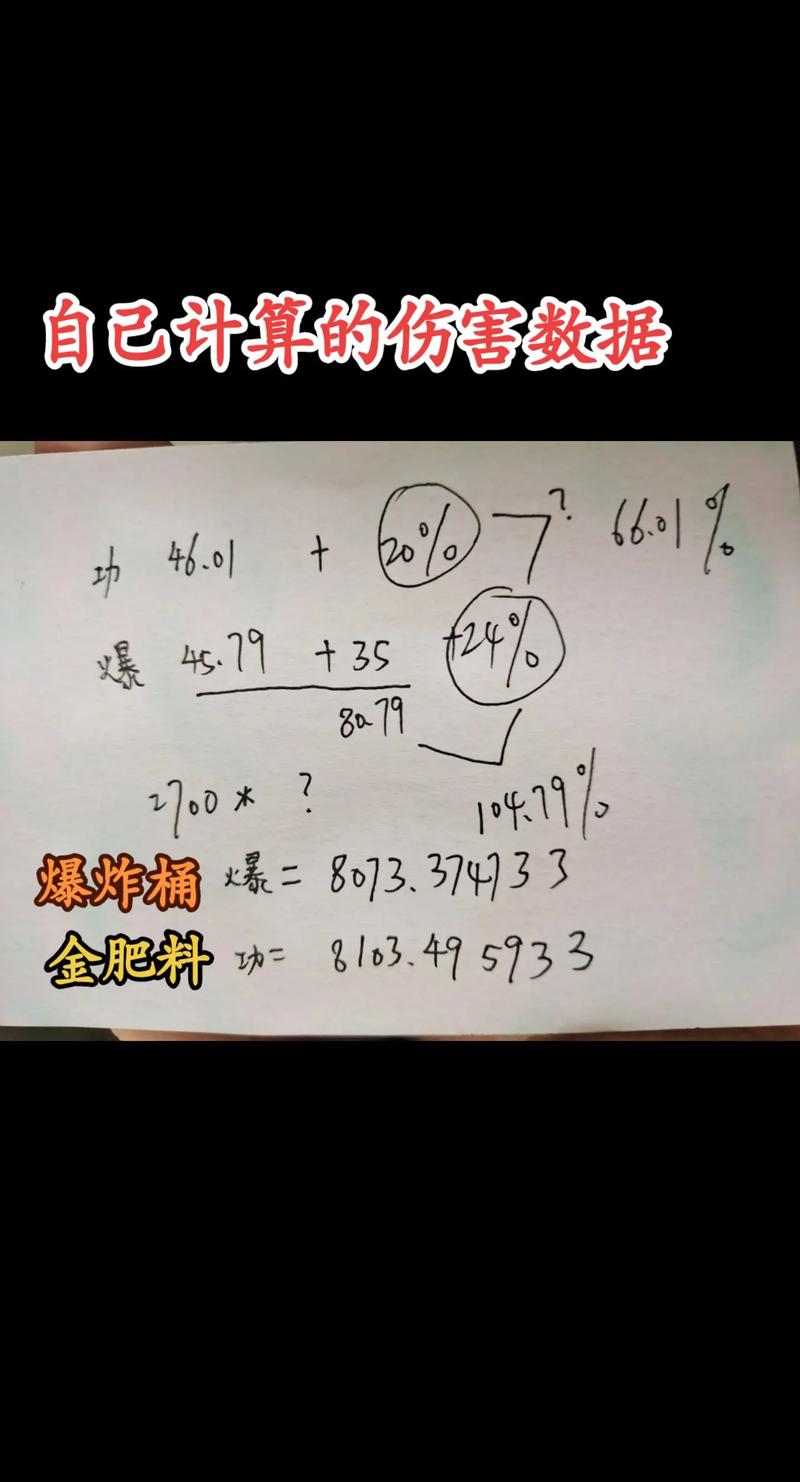 自己计算的伤害数据
功 46.01 + 20% ? 66.01%
爆 45.79 + 35 +24%
80.79
2700 * ? 104.79%
爆炸桶 爆= 8073.374733
金肥料 功= 8103.495933